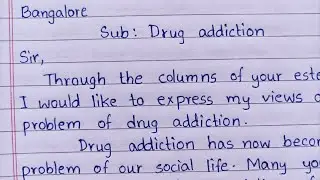 Bangalore
Sub: Drug addiction
Sir,
Through the columns of your
I would like to express my views
problem of drug addiction.
Drug addiction has now
problem of our social life. Many